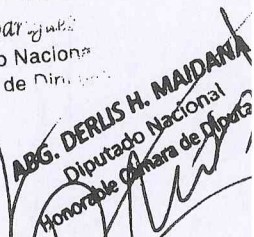 o Nacion
de
ABG. DERLIS H. MAIDANA
Diputado Nacional
Honorable Cámara de Diputa